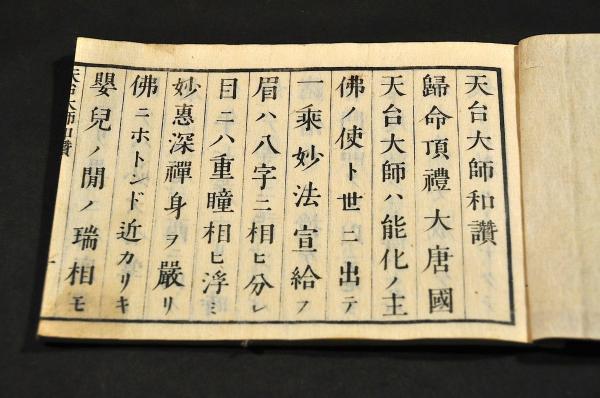 天台大師和讃
歸命頂禮大唐國
天台大師ハ能化ノ主
佛ノ使ト世ニ出テ
一乘妙法宣給フ
眉ハ八字ニ相ヒ分レ
目ニハ重瞳相ヒ浮ミ
妙惠深禪身ヲ嚴リ
佛ニホトンド近カリキ
嬰兒ノ間ノ瑞相モ
天台大師和讃
一